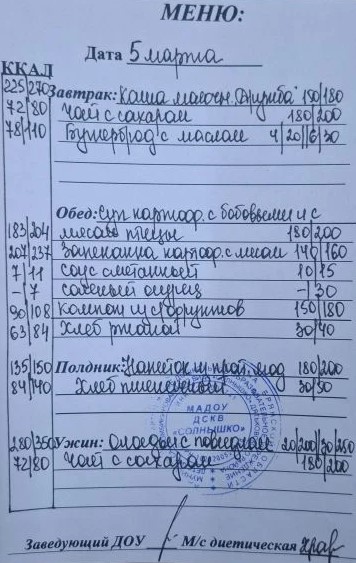 МЕНЮ:
Дата 5 марта
ККАЛ
225/270 Завтрак: Каша молочн. "Дружба" 150/180
72/80 Чай с сахаром 180/200
78/110 Бутерброд с маслом 4/20//6/30
Обед: Суп картоф. с бобовыми и с
183/204 мясом птицы 180/200
207/237 Запеканка картоф. с мясом 140/160
7/11 Соус сметанный 10/15
-/7 соленый огурец -/30
90/108 Компот из с/фруктов 150/180
63/84 Хлеб ржаной 30/40
135/150 Полдник: Напиток из 180/200
84/140 Хлеб пшеничный 30/50
МАДОУ
ДСКВ
«СОЛНЫШКО»
280/350 Ужин: Оладьи с повидлом 20/200/30/250
72/80 Чай с сахаром 180/200
Заведующий ДОУ М/с диетическая